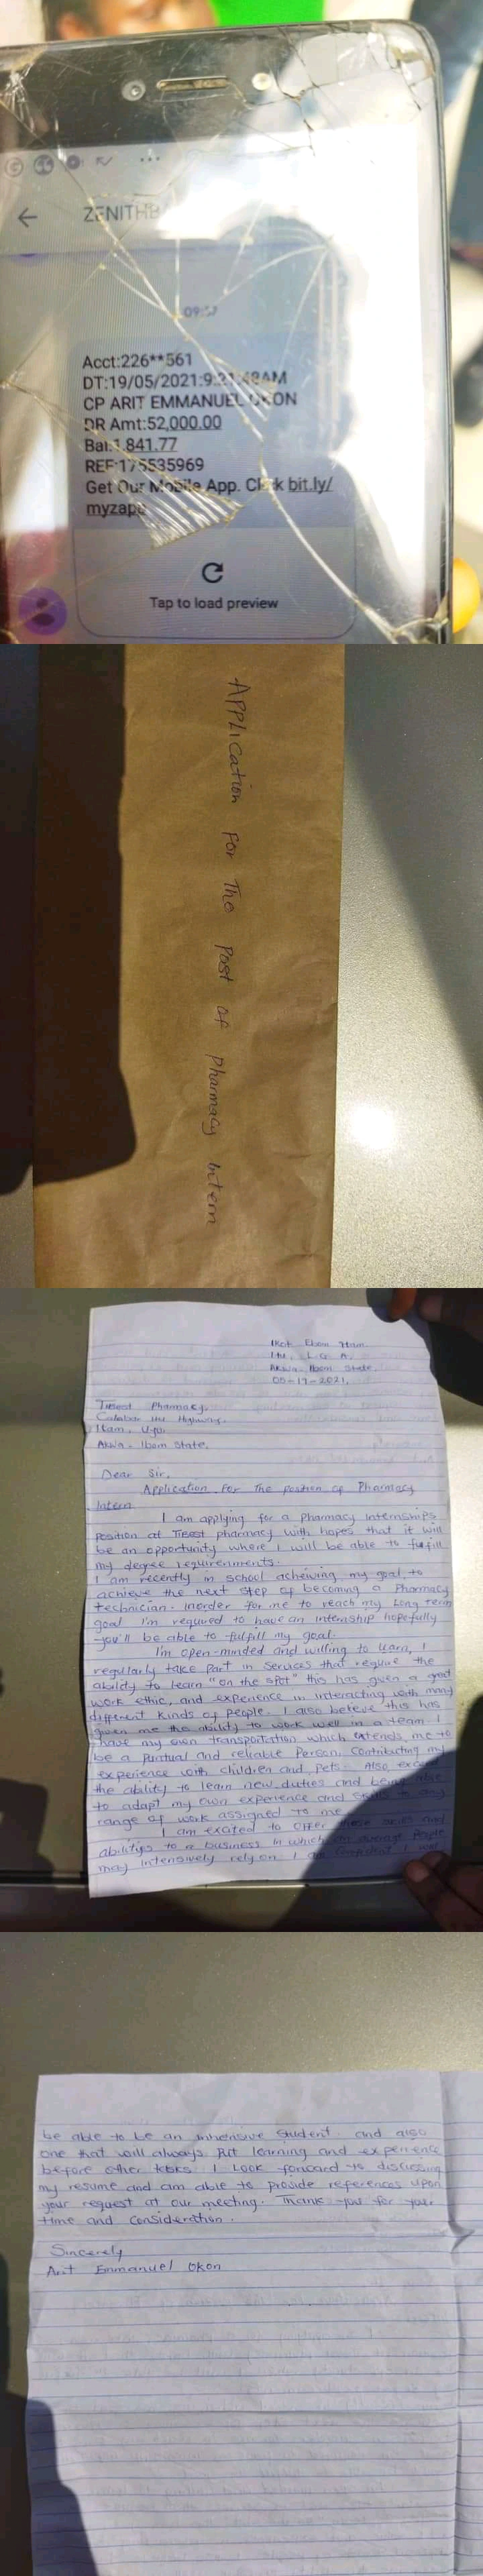 ZENITHB
09:57
Acct:226**561
DT:19/05/2021:9:21:48AM
CP ARIT EMMANUEL OKON
DR Amt:52,000.00
Bal:1,841.77
REF:175535969
Get Our Mobile App. Click bit.ly/
myzapp
Tap to load preview
Application For The Post of Pharmacy Intern
Ikot Ebom Itam
Itu, L.G.A,
Akwa-Ibom State,
05-19-2021,
Pharmacy,
Calabar Itu Highway,
Itam, Uyo,
Akwa-Ibom State.
Dear Sir,
Application For The position of Pharmacy
Intern
I am applying for a Pharmacy Internships
position at pharmacy with hopes that it will
be an opportunity where I will be able to fulfill
my degree requirenments.
I am recently in school acheiving my goal to
achieve the next step of becoming a Pharmacy
technician. Inorder for me to reach my Long term
goal I'm required to have an intership hopefully
you'll be able to fulfill my goal.
I'm open-minded and willing to learn, I
regularly take part in services that require the
ability to learn "on the spot" this has given a great
work ethic, and experience in interacting with many
different kinds of people. I also believe this has
given me the ability to work well in a team I
have my own transportation which extends me to
be a Puntual and reliable Person, Contributing my
experience with children and pets. Also,
the ability to learn new duties and being able
to adapt my own experience and skills to any
range of work assigned to me
I am excited to offer these and
abilitys to a business in which people
may intensively rely on I
be able to be an inhensive student and also
one that will always Put learning and experience
before other tasks. I Look forward to discussing
my resume and am able to provide references upon
your request at our meeting. Thank you for your
time and consideration.
Sincerely
Arit Emmanuel Okon